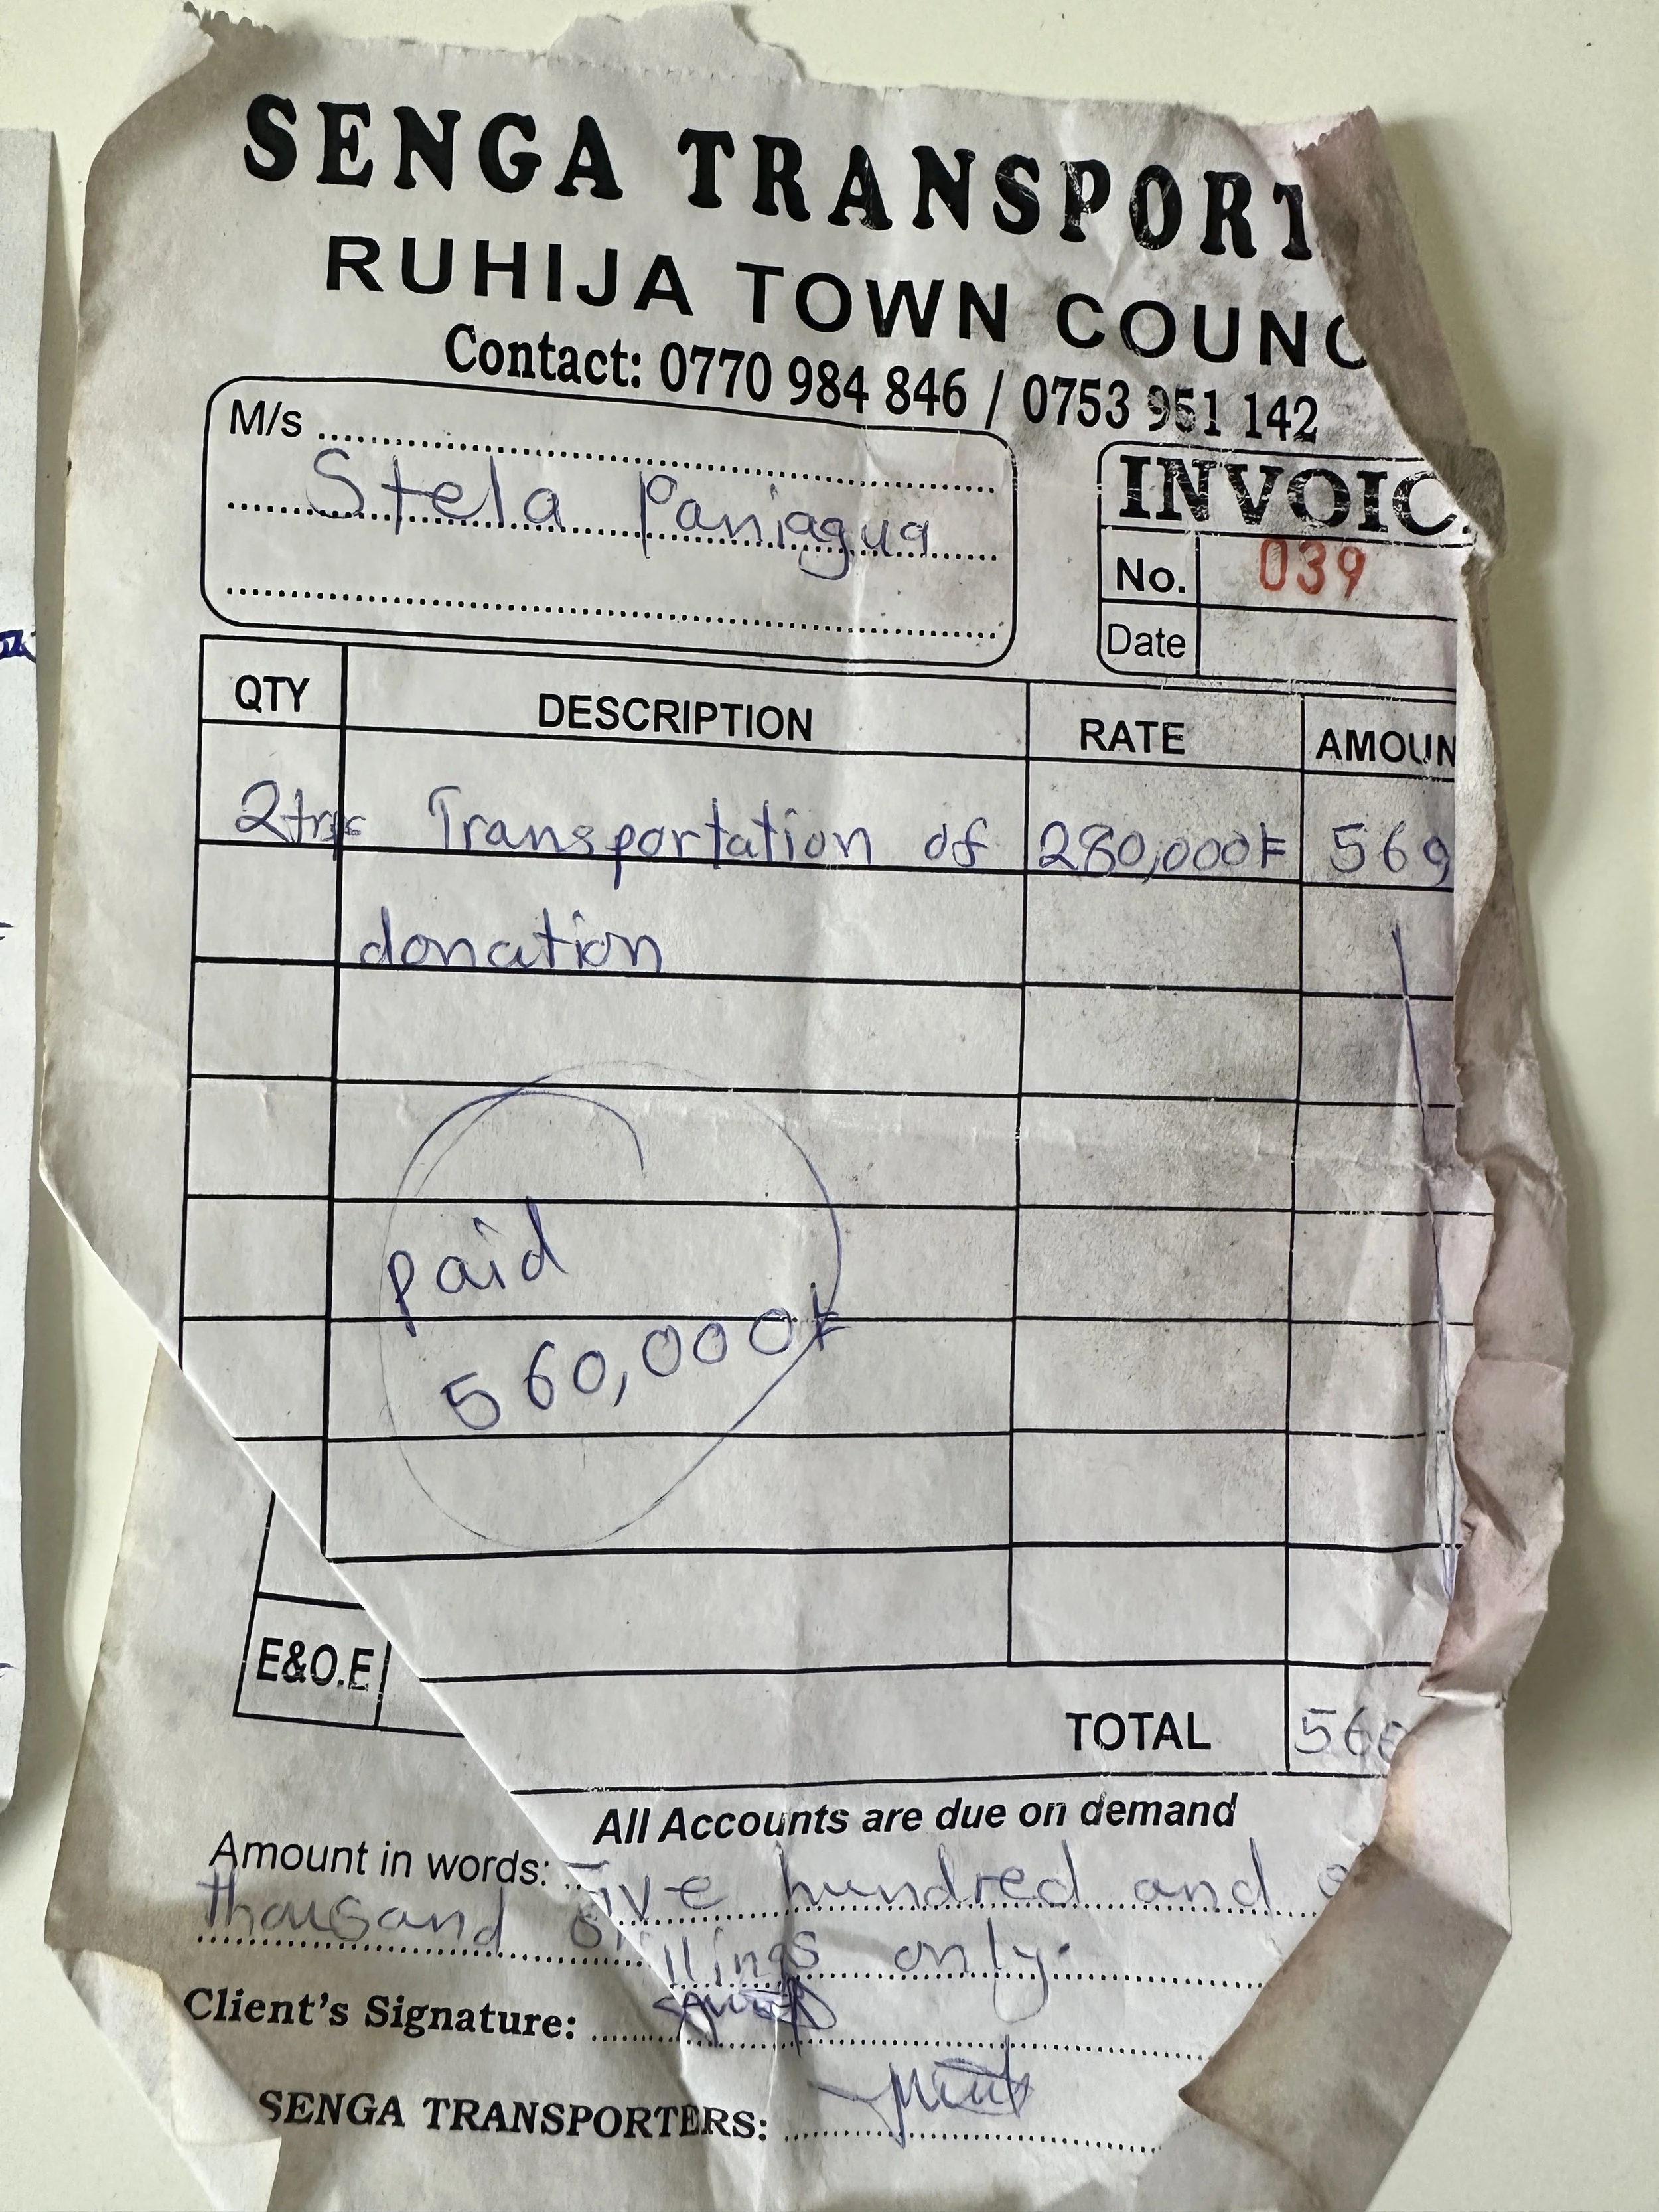 SENGA TRANSPORT
RUHIJA TOWN COUNC
Contact: 0770 984 846 / 0753 951 142
M/s
Stela Paniagua
INVOIC
No. 039
Date
QTY DESCRIPTION RATE AMOUN
2trps Transportation of 280,000F 560
donation
paid
560,000F
E&O.E
TOTAL 560
All Accounts are due on demand
Amount in words: Five hundred and
thousand shillings only.
Client's Signature:
SENGA TRANSPORTERS: